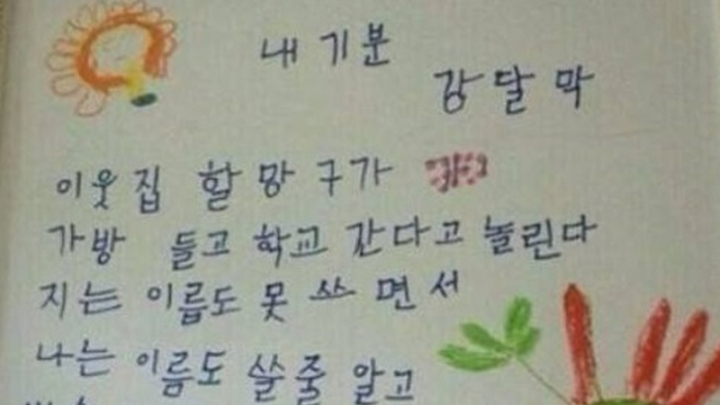 내 기분
강달막
이웃집 할망구가
가방 들고 학교 간다고 놀린다
지는 이름도 못 쓰면서
나는 이름도 쓸줄 알고